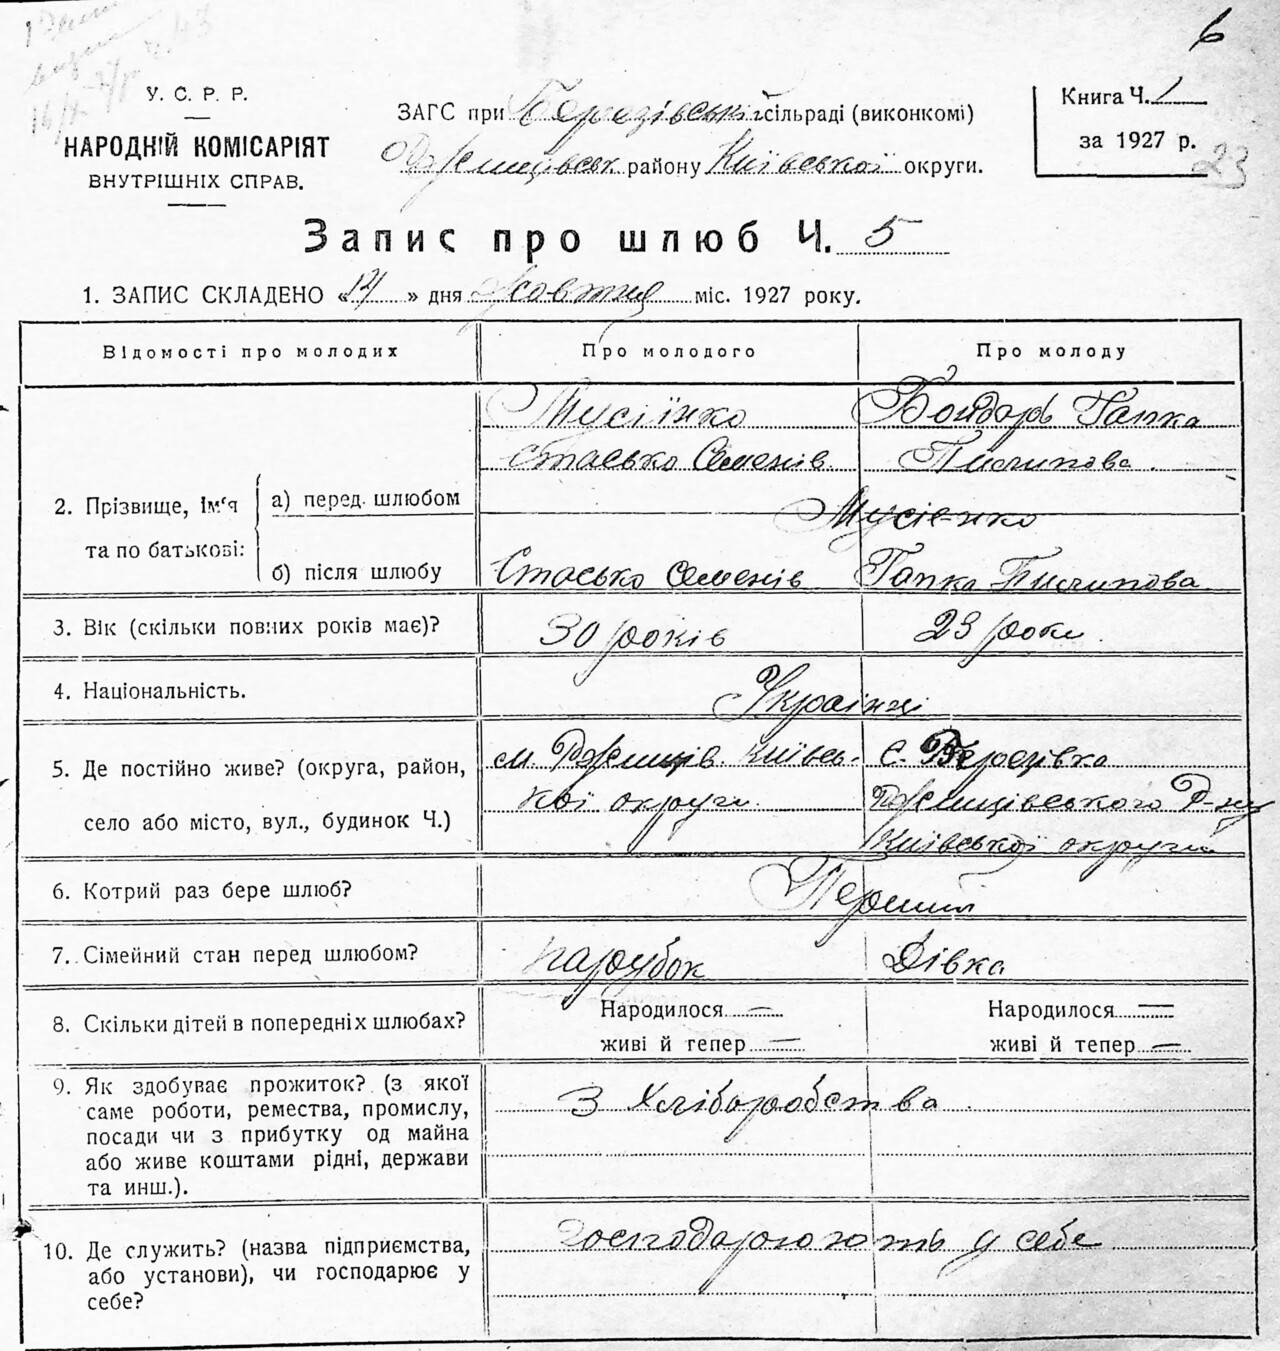 6
У. С. Р. Р.
НАРОДНІЙ КОМІСАРІЯТ
ВНУТРІШНІХ СПРАВ.
ЗАГС при Березівській сільраді (виконкомі)
Ржищівськ району Київської округи.
Книга Ч. 1
за 1927 р.
23
Запис про шлюб Ч. 5
1. ЗАПИС СКЛАДЕНО « » дня Жовтня міс. 1927 року.
Відомості про молодих
Про молодого
Про молоду
2. Прізвище, Ім'я та по батькові:
а) перед. шлюбом
Мусіїнко
Стасько Семенів
Бондарь Гапка
Пилипова.
Мусіенко
б) після шлюбу
Стасько Семенів
Гапка Пилипова
3. Вік (скільки повних років має)?
30 років
23 роки.
4. Національність.
Українці
5. Де постійно живе? (округа, район,
село або місто, вул., будинок Ч.)
м. Ржищів. Київсь-
кої округи.
с. Березівка
Ржищівського Р-ну
Київської округи
6. Котрий раз бере шлюб?
Перший
7. Сімейний стан перед шлюбом?
парубок
Дівка
8. Скільки дітей в попередніх шлюбах?
Народилося —
живі й тепер —
Народилося —
живі й тепер —
9. Як здобуває прожиток? (з якої
саме роботи, ремества, промислу,
посади чи з прибутку од майна
або живе коштами рідні, держави
та инш.).
З Хліборобства
10. Де служить? (назва підприємства,
або установи), чи господарює у
себе?
Господарюють у себе